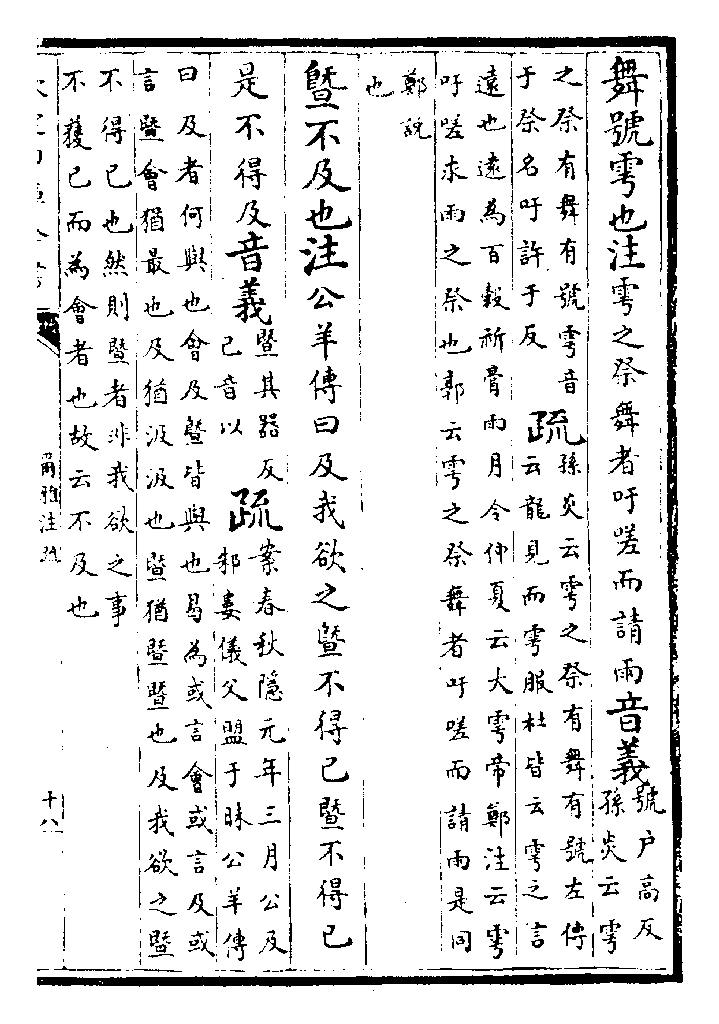 舞號雩也注雩之祭舞者吁嗟而請雨音義號户高反孫炎云雩
之祭有舞有號雩音于祭名吁許于反
疏孫炎云雩之祭有舞有號左傳云龍見而雩服杜皆云雩之言
遠也遠為百穀祈膏雨月令仲夏云大雩帝鄭注云雩
吁嗟求雨之祭也郭云雩之祭舞者吁嗟而請雨是同
鄭說
也
暨不及也注公羊傳曰及我欲之暨不得已暨不得已
是不得及音義暨其器反已音以疏案春秋隱元年三月公及邾婁儀父盟于昧公羊傳
曰及者何與也會及暨皆與也曷為或言會或言及或
言暨會猶最也及猶汲汲也暨猶暨暨也及我欲之暨
不得已也然則暨者非我欲之事
不獲已而為會者也故云不及也
爾雅注疏
十八